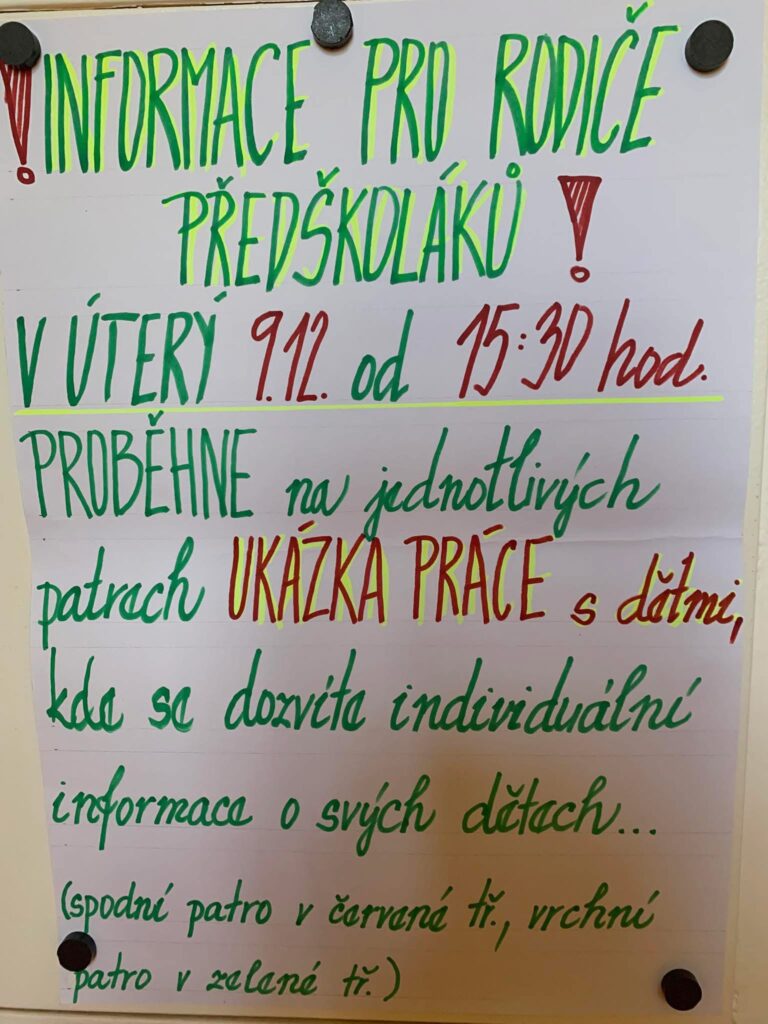 ! INFORMACE PRO RODIČE
PŘEDŠKOLÁKŮ !
V ÚTERÝ 9.12. od 15:30 hod.
PROBĚHNE na jednotlivých
patrech UKÁZKA PRÁCE s dětmi,
kde se dozvíte individuální
informace o svých dětech...
(spodní patro v červené tř., vrchní
patro v zelené tř.)